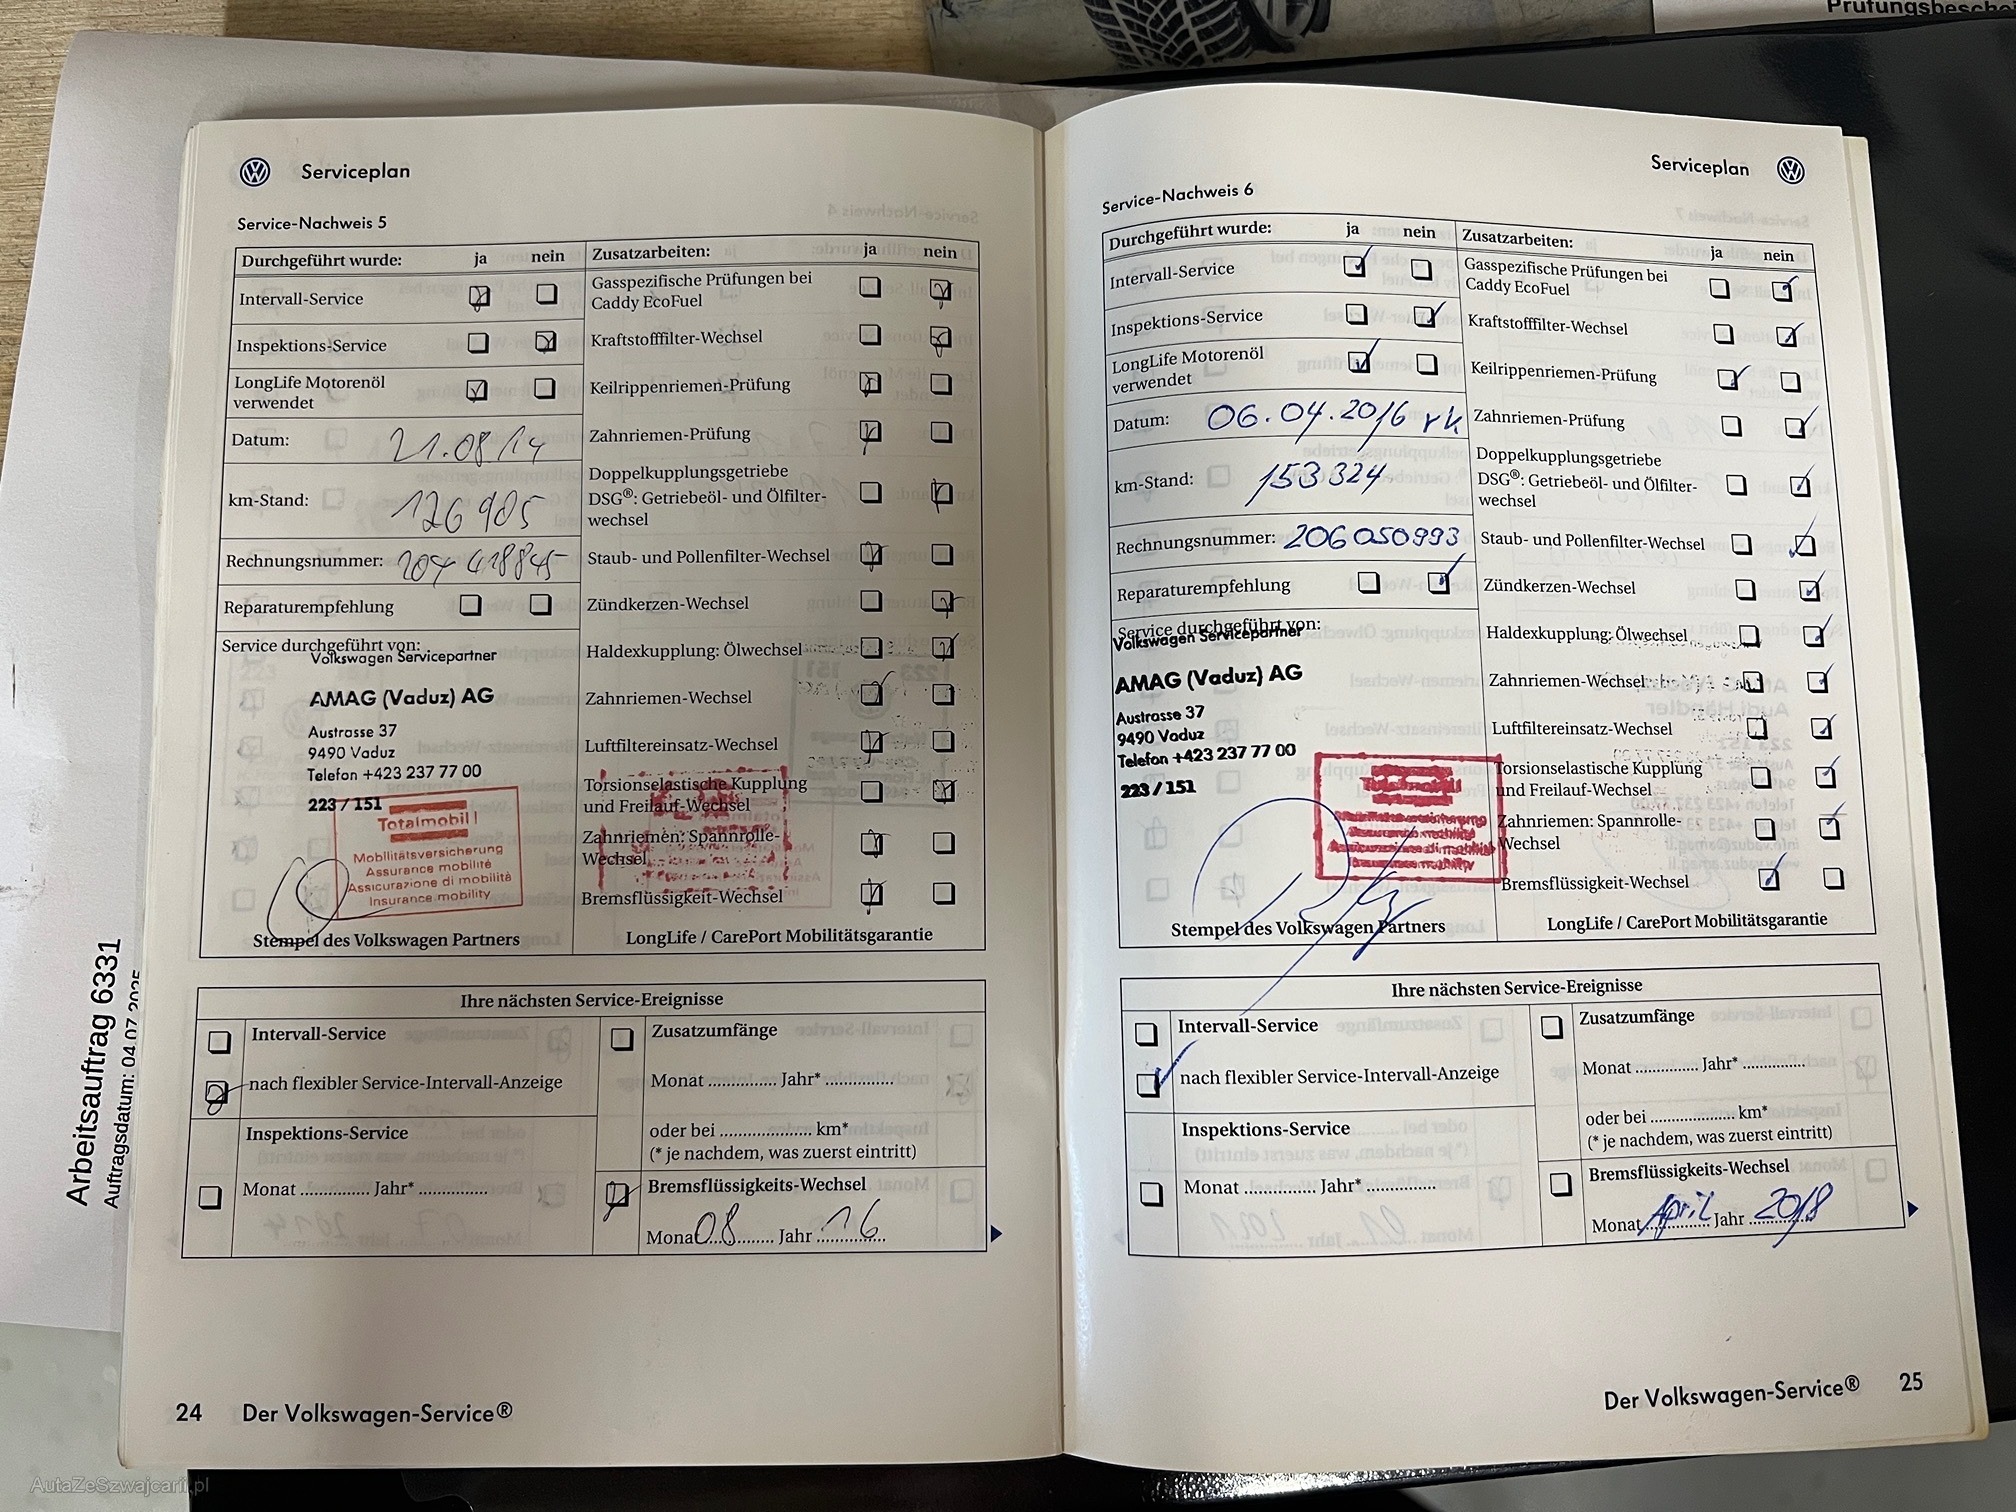 Prüfungsbeschei
Arbeitsauftrag 6331
Auftragsdatum: 04.07.2025
Serviceplan
Service-Nachweis 5
Durchgeführt wurde: ja nein
Intervall-Service
Inspektions-Service
LongLife Motorenöl
verwendet
Datum: 21.08.14
km-Stand: 126905
Rechnungsnummer: 204 418845
Reparaturempfehlung
Service durchgeführt von:
Volkswagen Servicepartner
AMAG (Vaduz) AG
Austrasse 37
9490 Vaduz
Telefon +423 237 77 00
223 / 151
Totalmobil !
Mobilitätsversicherung
Assurance mobilité
Assicurazione di mobilità
Insurance mobility
Stempel des Volkswagen Partners
Zusatzarbeiten: ja nein
Gasspezifische Prüfungen bei
Caddy EcoFuel
Kraftstofffilter-Wechsel
Keilrippenriemen-Prüfung
Zahnriemen-Prüfung
Doppelkupplungsgetriebe
DSG®: Getriebeöl- und Ölfilter-
wechsel
Staub- und Pollenfilter-Wechsel
Zündkerzen-Wechsel
Haldexkupplung: Ölwechsel
Zahnriemen-Wechsel
Luftfiltereinsatz-Wechsel
Torsionselastische Kupplung
und Freilauf-Wechsel
Zahnriemen: Spannrolle-
Wechsel
Bremsflüssigkeit-Wechsel
LongLife / CarePort Mobilitätsgarantie
Ihre nächsten Service-Ereignisse
Intervall-Service
nach flexibler Service-Intervall-Anzeige
Inspektions-Service
Monat ............... Jahr* ...............
Zusatzumfänge
Monat ............... Jahr* ...............
oder bei .................... km*
(* je nachdem, was zuerst eintritt)
Bremsflüssigkeits-Wechsel
Monat 08 Jahr 16
24 Der Volkswagen-Service®
Serviceplan
Service-Nachweis 6
Durchgeführt wurde: ja nein
Intervall-Service
Inspektions-Service
LongLife Motorenöl
verwendet
Datum: 06.04.2016 rk
km-Stand: 153324
Rechnungsnummer: 206050993
Reparaturempfehlung
Service durchgeführt von:
Volkswagen Servicepartner
AMAG (Vaduz) AG
Austrasse 37
9490 Vaduz
Telefon +423 237 77 00
223 / 151
Stempel des Volkswagen Partners
Zusatzarbeiten: ja nein
Gasspezifische Prüfungen bei
Caddy EcoFuel
Kraftstofffilter-Wechsel
Keilrippenriemen-Prüfung
Zahnriemen-Prüfung
Doppelkupplungsgetriebe
DSG®: Getriebeöl- und Ölfilter-
wechsel
Staub- und Pollenfilter-Wechsel
Zündkerzen-Wechsel
Haldexkupplung: Ölwechsel
Zahnriemen-Wechsel
Luftfiltereinsatz-Wechsel
Torsionselastische Kupplung
und Freilauf-Wechsel
Zahnriemen: Spannrolle-
Wechsel
Bremsflüssigkeit-Wechsel
LongLife / CarePort Mobilitätsgarantie
Ihre nächsten Service-Ereignisse
Intervall-Service
nach flexibler Service-Intervall-Anzeige
Inspektions-Service
Monat ............... Jahr* ...............
Zusatzumfänge
Monat ............... Jahr* ...............
oder bei .................... km*
(* je nachdem, was zuerst eintritt)
Bremsflüssigkeits-Wechsel
Monat April Jahr 2018
Der Volkswagen-Service® 25
AutaZeSzwajcarii.pl